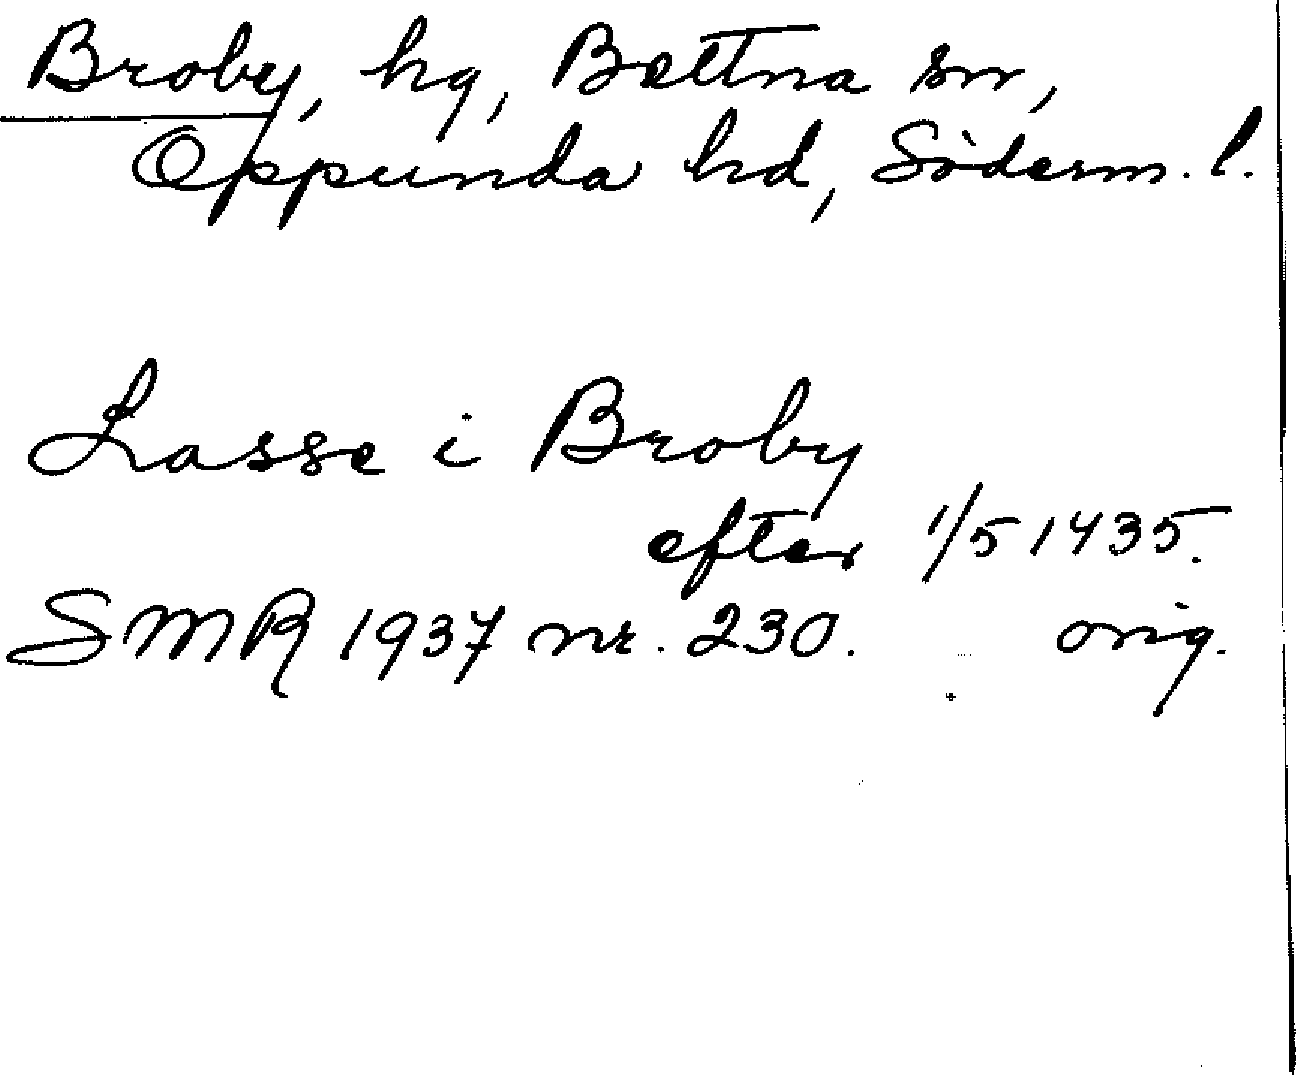 Broby, hg, Bettna sn,
Oppunda hd, Söderm. l.
Lasse i Broby
efter 1/5 1435.
SMR 1937 nr. 230. orig.